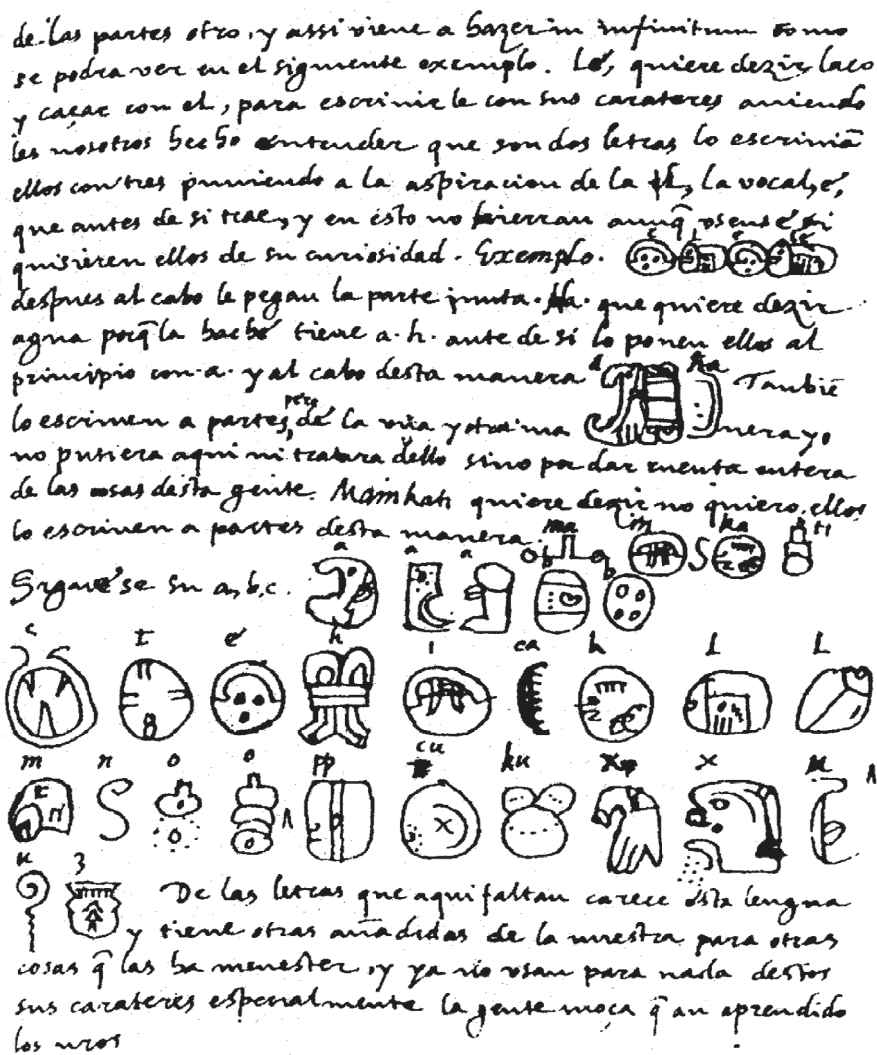 de las partes otro, y assi viene a hazer in infinitum como
se podra ver en el siguiente exemplo. Lé, quiere dezir laço
y caçar con el, para escriuirle con sus carateres auiendo
les nosotros hecho entender que son dos letras lo escriuiā
ellos con tres puniendo a la aspiracion de la l, la vocal, é,
que antes de si trae, y en ésto no hierran aunq̄ osense si
quisieren ellos de su curiosidad. Exemplo. e l e le
despues al cabo le pegan la parte junta. Ha. que quiere dezir
agua porq̄ la hache tiene a. h. ante de si lo ponen ellos al
principio con .a. y al cabo desta manera a ha Tanbiē
lo escriuen a partes, pero de la vna y otra ma nera yo
no pusiera aqui ni tratara dello sino por dar cuenta entera
de las cosas desta gente. Mainkati quiere dezir no quiero, ellos
lo escriuen a partes desta manera. ma i n ka ti
Siguese su a, b, c. a a a b b
c t e h i ca k l l
m n o o pp cu ku x x u
u z De las letras que aqui faltan carece ésta lengua
y tiene otras añadidas de la nuestra para otras
cosas q̄ las ha menester, y ya no vsan para nada destos
sus carateres espeçialmente la gente moça q̄ an aprendido
los nros